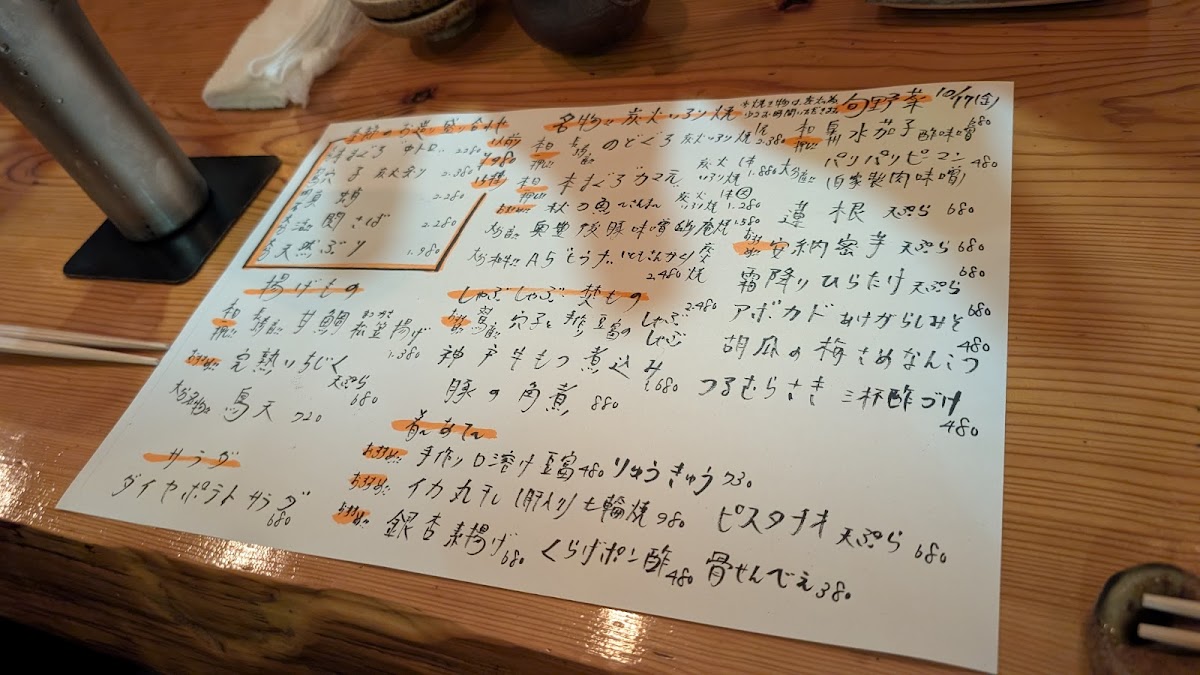 季節のお造り盛り合わせ
本まぐろ 中トロ 2.280
穴子 炙り 2.380
1人前
1.980
2.280
関さば 2.280
天然ぶり 1.980
揚げもの
甘鯛 松笠揚げ
1.380
おすすめ!! 完熟いちじく
天ぷら
680
大分名物!! 鳥天 720
サラダ
ダイヤポテトサラダ
680
名物!! 炭火いろり焼
のどぐろ 炭火いろり焼 2.380
本まぐろカマ
炭火いろり焼 1.880
秋の魚
炭火いろり焼 1.280
奥豊後豚味噌幽庵焼 1.580
大分和牛!! A5
2.480
しゃぶしゃぶ・焚もの
穴子と手作り豆腐のしゃぶしゃぶ
2.480
神戸牛もつ煮込み
1.680
豚の角煮 880
おすすめ!! 手作り口溶け豆腐 480
りゅうきゅう 730
おすすめ!! イカ丸干し(肝入り)七輪焼 980
ピスタチオ 天ぷら 680
おすすめ!! 銀杏素揚げ 680
くらげポン酢 480
骨せんべえ 380
旬野菜 10/17(金)
水茄子 酢味噌 680
パリパリピーマン 480
(自家製肉味噌)
蓮根 天ぷら 680
おすすめ!! 安納蜜芋 天ぷら 680
霜降りひらたけ 天ぷら 680
アボカド あげがらしみそ 680
胡瓜の梅さめなんこつ 480
つるむらさき 三杯酢づけ
480